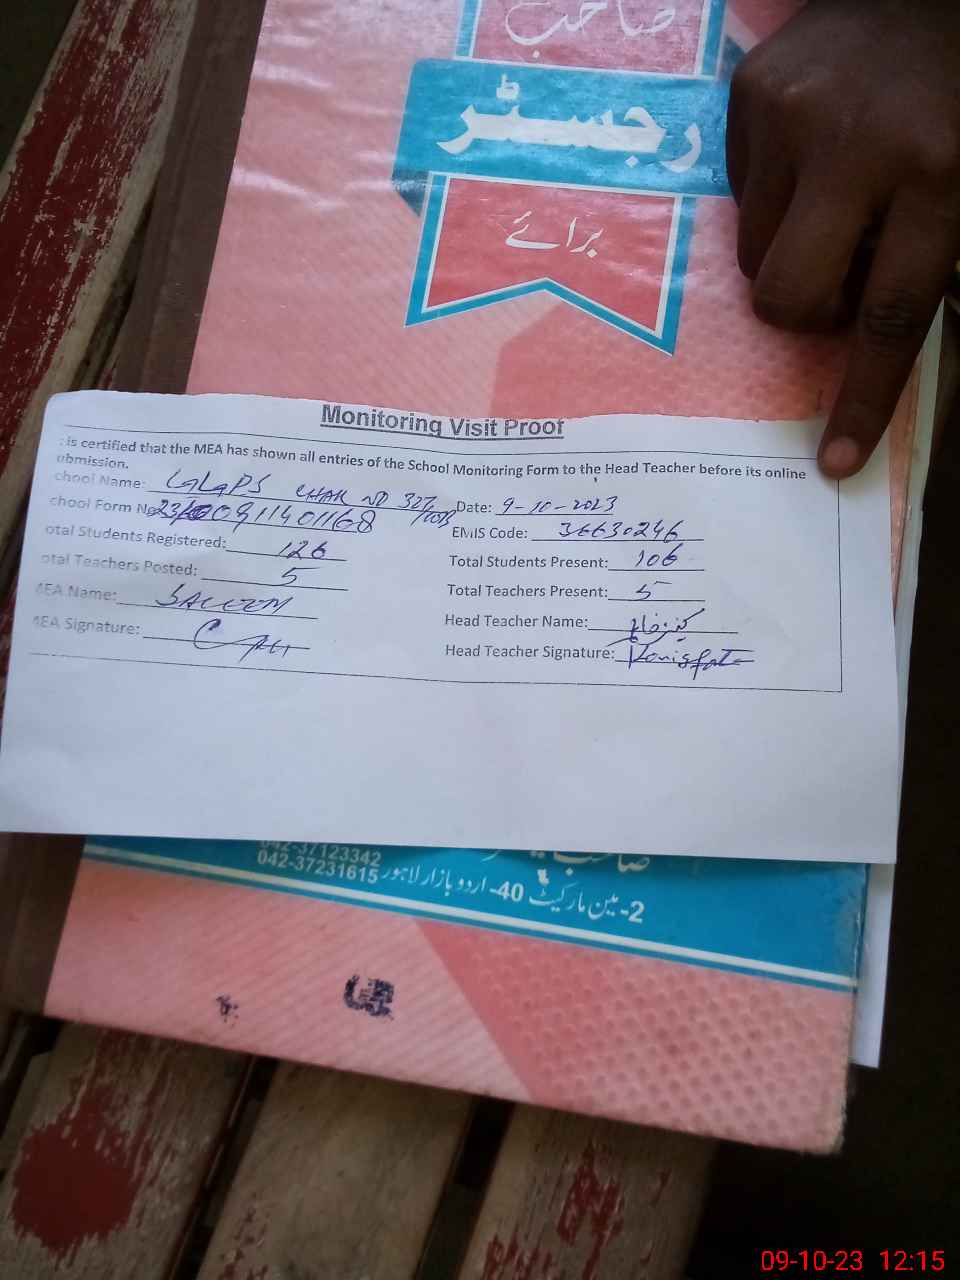 صاحب
رجسٹر
برائے
Monitoring Visit Proof
is certified that the MEA has shown all entries of the School Monitoring Form to the Head Teacher before its online
ubmission.
chool Name: CHAK NO 327 Date: 9-10-2023
chool Form No 0911401168 EMIS Code: 36630246
otal Students Registered: 126 Total Students Present: 106
otal Teachers Posted: 5 Total Teachers Present: 5
MEA Name: SALEEM Head Teacher Name:
MEA Signature: Head Teacher Signature:
042-37123342
2- مین مارکیٹ 40- اردو بازار لاہور 042-37231615
09-10-23 12:15